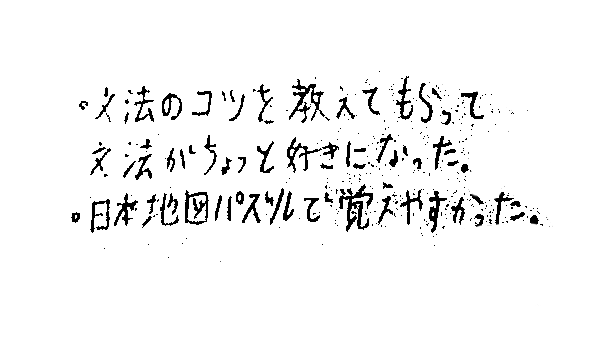 。文法のコツを教えてもらって
文法がちょっと好きになった。
。日本地図パズルで覚えやすかった。